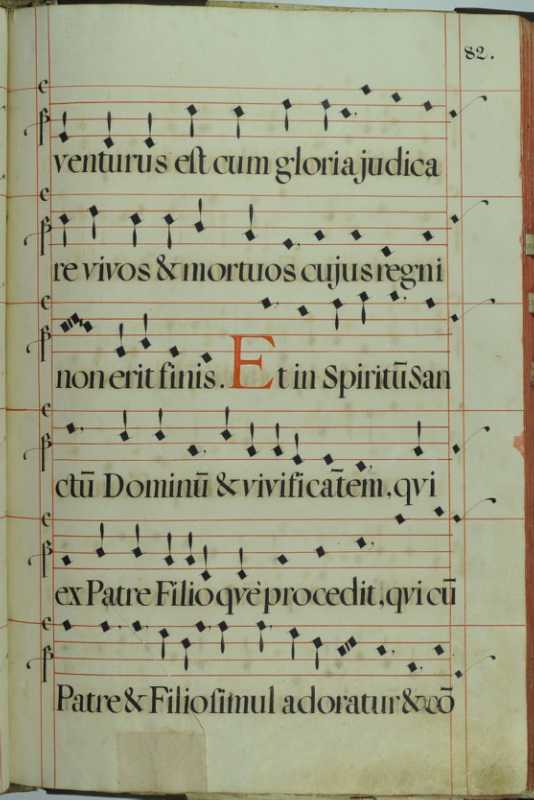 82.
venturus eſt cum gloria judica
re vivos & mortuos cujus regni
non erit finis. Et in Spiritū San
ctū Dominū & vivificātem, qvi
ex Patre Filio qvè procedit, qvi cū
Patre & Filio ſimul adoratur & cō